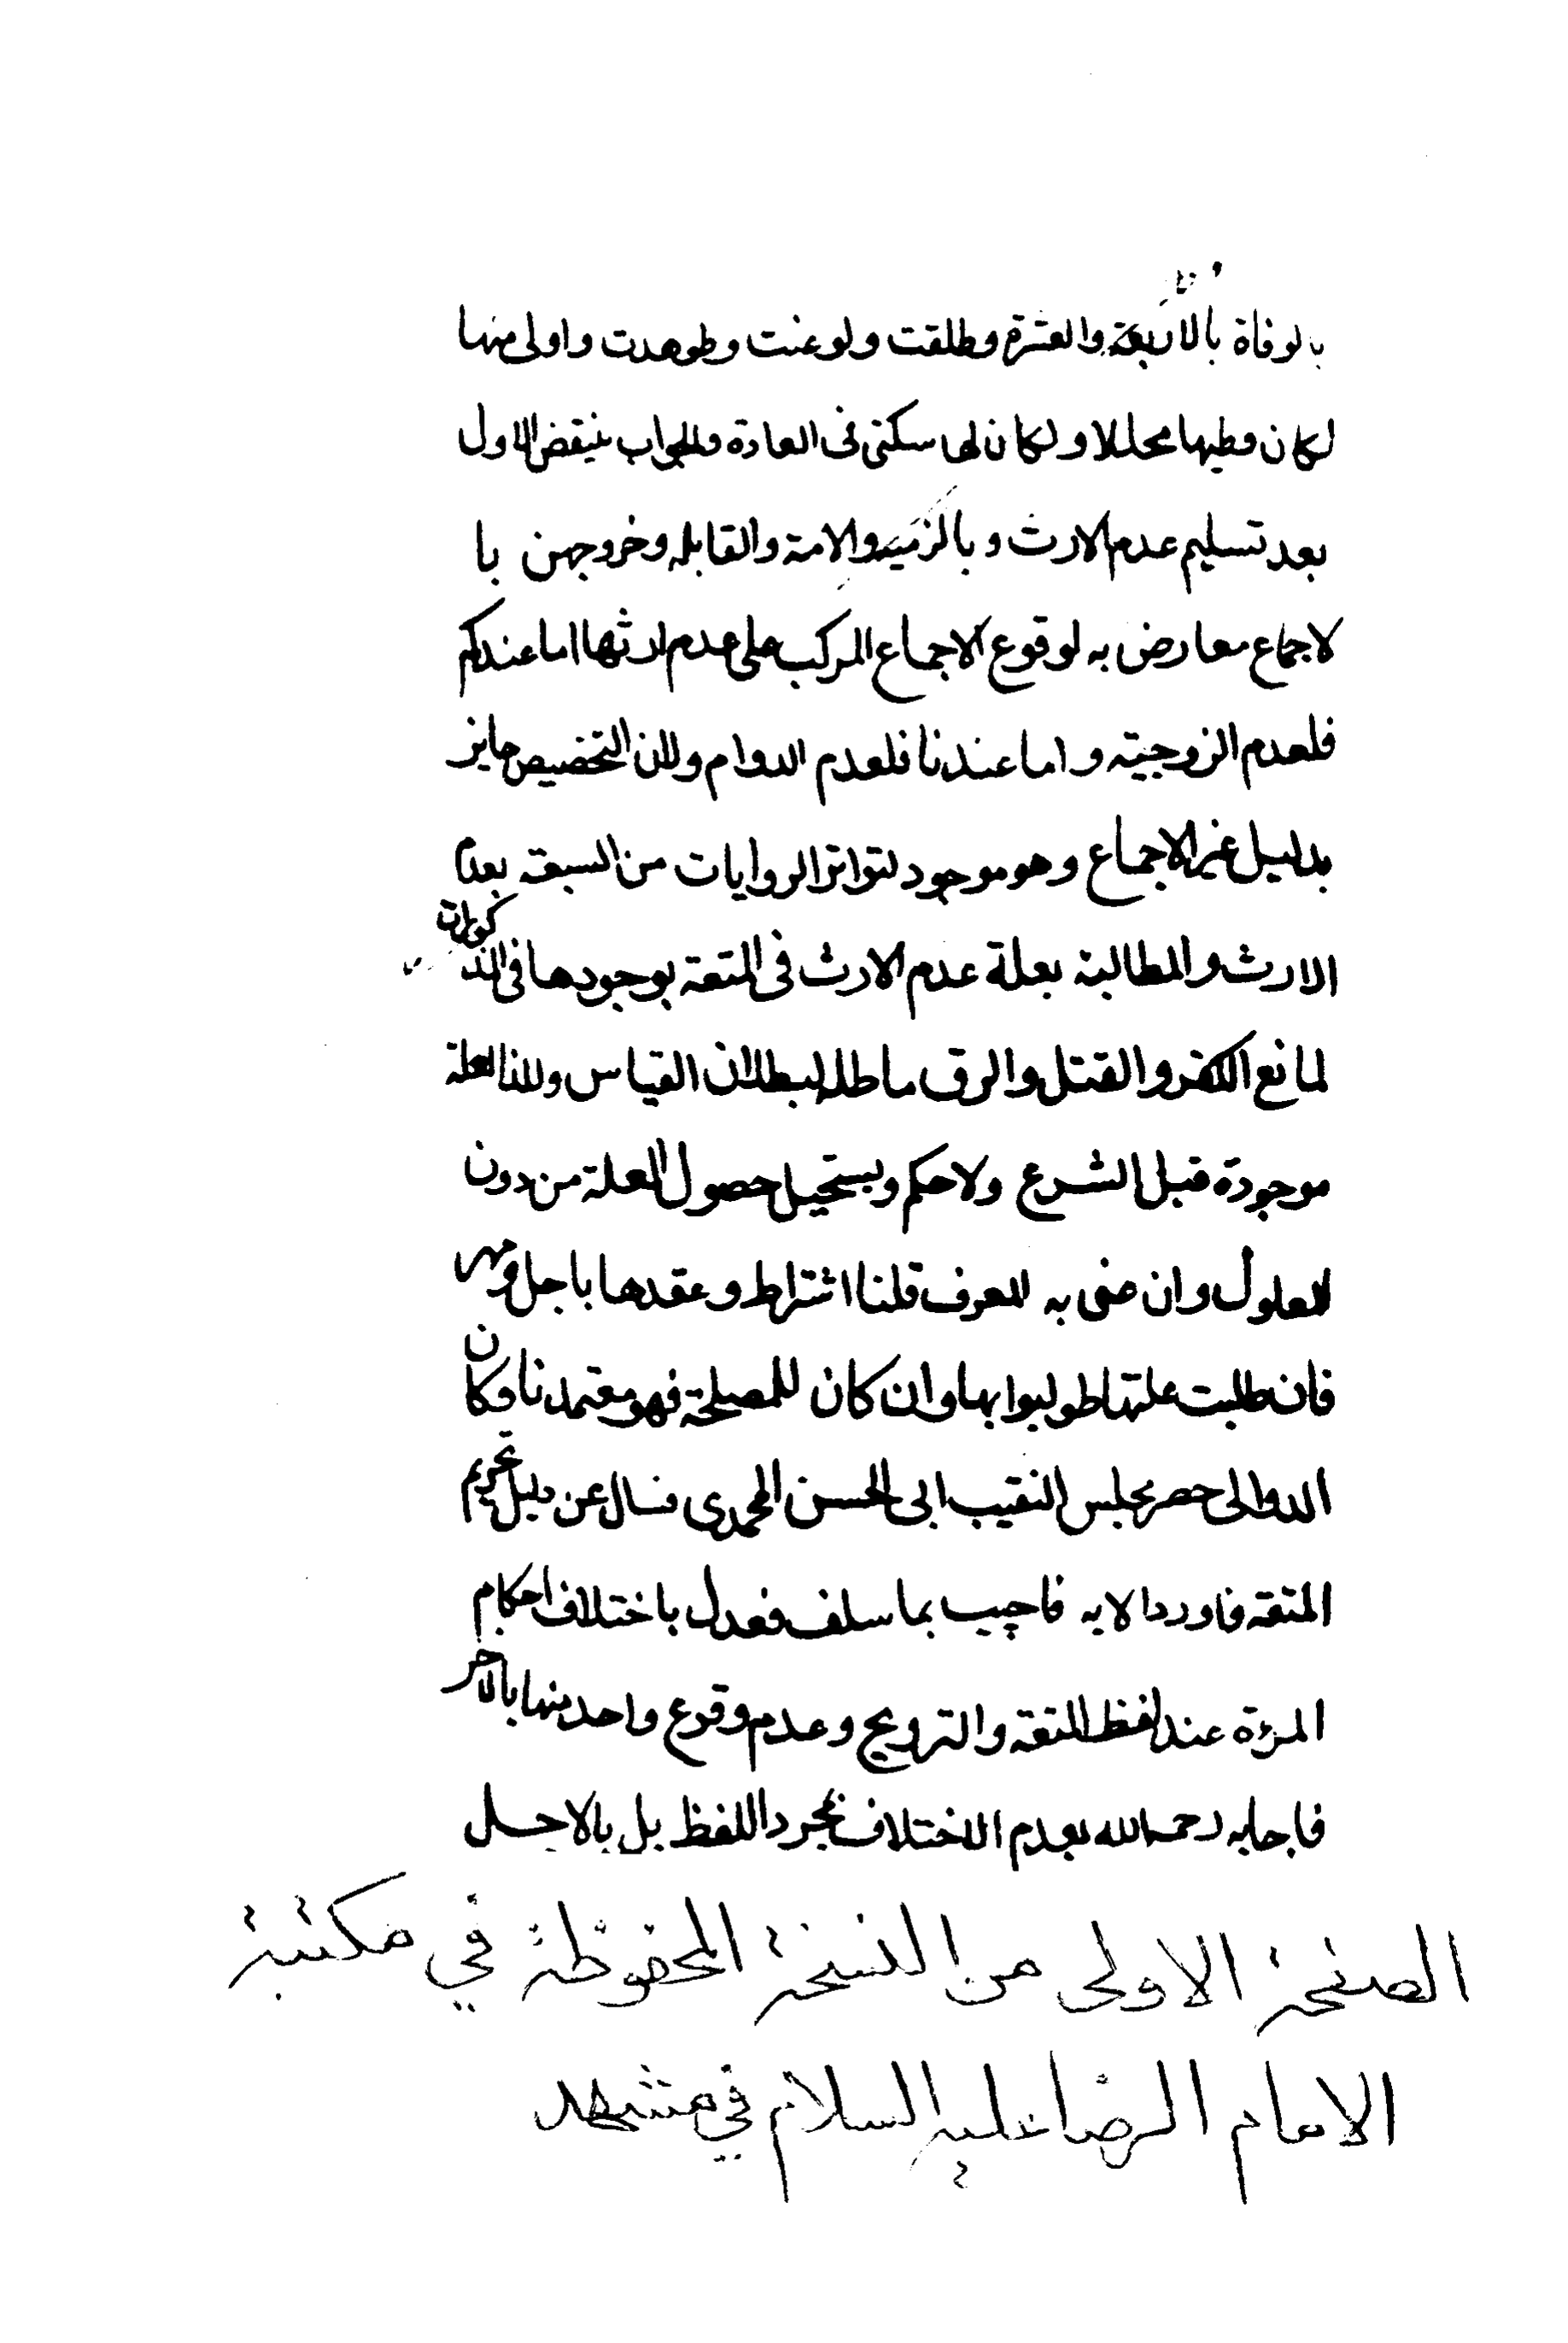 بالوفاة بالاربعة والعشرة وطلقت ولوعنت وظوهدت واولى منها
لكان وطيها محللا ولكان لها سكنى فى العادة والجواب ينيقض الاول
بعد تسليم عدم الارث و بالزمية والامة والقابله وخروجهن با
لاجماع معارض به لوقوع الاجماع المركب على عدم ارثها اما عندكم
فلعدم الزوجيته واما عندنا فلعدم الدوام ولان التخصيص جايز
بدليل غير الاجماع وهو موجود لتواتر الروايات من السبعة بعدم
الارث والمطالبة بعلة عدم الارث فى المتعة بوجودها فى المذكورات
لمانع الكفر والقتل والرق ماطلا لبطلان القياس ولان العلة
موجودة قبل الشرع ولا حكم ويستحيل حصول العلة من دون
المعلول وان عنى به المعرف قلنا اشتراط وعقدها باجل ومهر
فان طلبت علتها طولبوا بها وان كان للمصلحة فهو معتمدنا وكان
الدوالى حضر مجلس النقيب ابى الحسن المحمدى فسال عن دليل تحريم
المتعة فاورد الايه فاجيب بما سلف فعدل باختلاف احكام
المرءة عند لفظ المتعة والترويج وعدم وقوع واحد منها بالاخر
فاجابه رحمه الله بعدم الاختلاف بمجرد اللفظ بل بالاجل
الصفحة الاولى من النسخة المحفوظة في مكتبة
الامام الرضا عليه السلام في مشهد